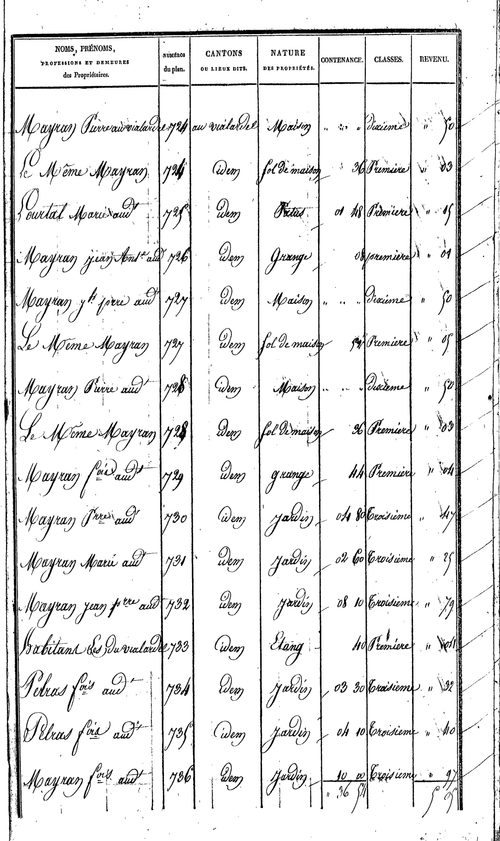 NOMS, PRÉNOMS, PROFESSIONS ET DEMEURES des Propriétaires. NUMÉROS du plan. CANTONS OU LIEUX DITS. NATURE DES PROPRIÉTÉS. CONTENANCE. CLASSES. REVENU.
Mayran Pierre au vialardel 724 au vialardel Maison " " " dixième " 50
Le Même Mayran 724 idem sol de maison 36 Première " 03
Courtal Marie aud.t 725 idem Patus 01 48 Première " 15
Mayran jean Ant.ne aud 726 idem Grange 08 première " 01
Mayran j.h pierre aud.t 727 idem Maison " " " dixième " 50
Le Même Mayran 727 idem sol de maison 54 Première " 05
Mayran Pierre aud.t 728 idem Maison " " " dixième " 50
Le Même Mayran 728 idem sol de maison 36 Première " 03
Mayran fois aud.t 729 idem grange 44 Première " 04
Mayran Pierre aud 730 idem Jardin 04 80 Troisième " 47
Mayran Marie aud 731 idem Jardin 02 60 Troisième " 25
Mayran jean pierre aud 732 idem Jardin 08 10 Troisieme " 79
habitans Les du vialardel 733 idem Etang 40 Première " 04
Petras fois aud.t 734 idem Jardin 03 30 Troisieme " 32
Petras fois aud.t 735 idem Jardin 04 10 Troisieme " 40
Mayran fois aud.t 736 idem Jardin 10 00 Troisieme " 97
" 36 54 5 05